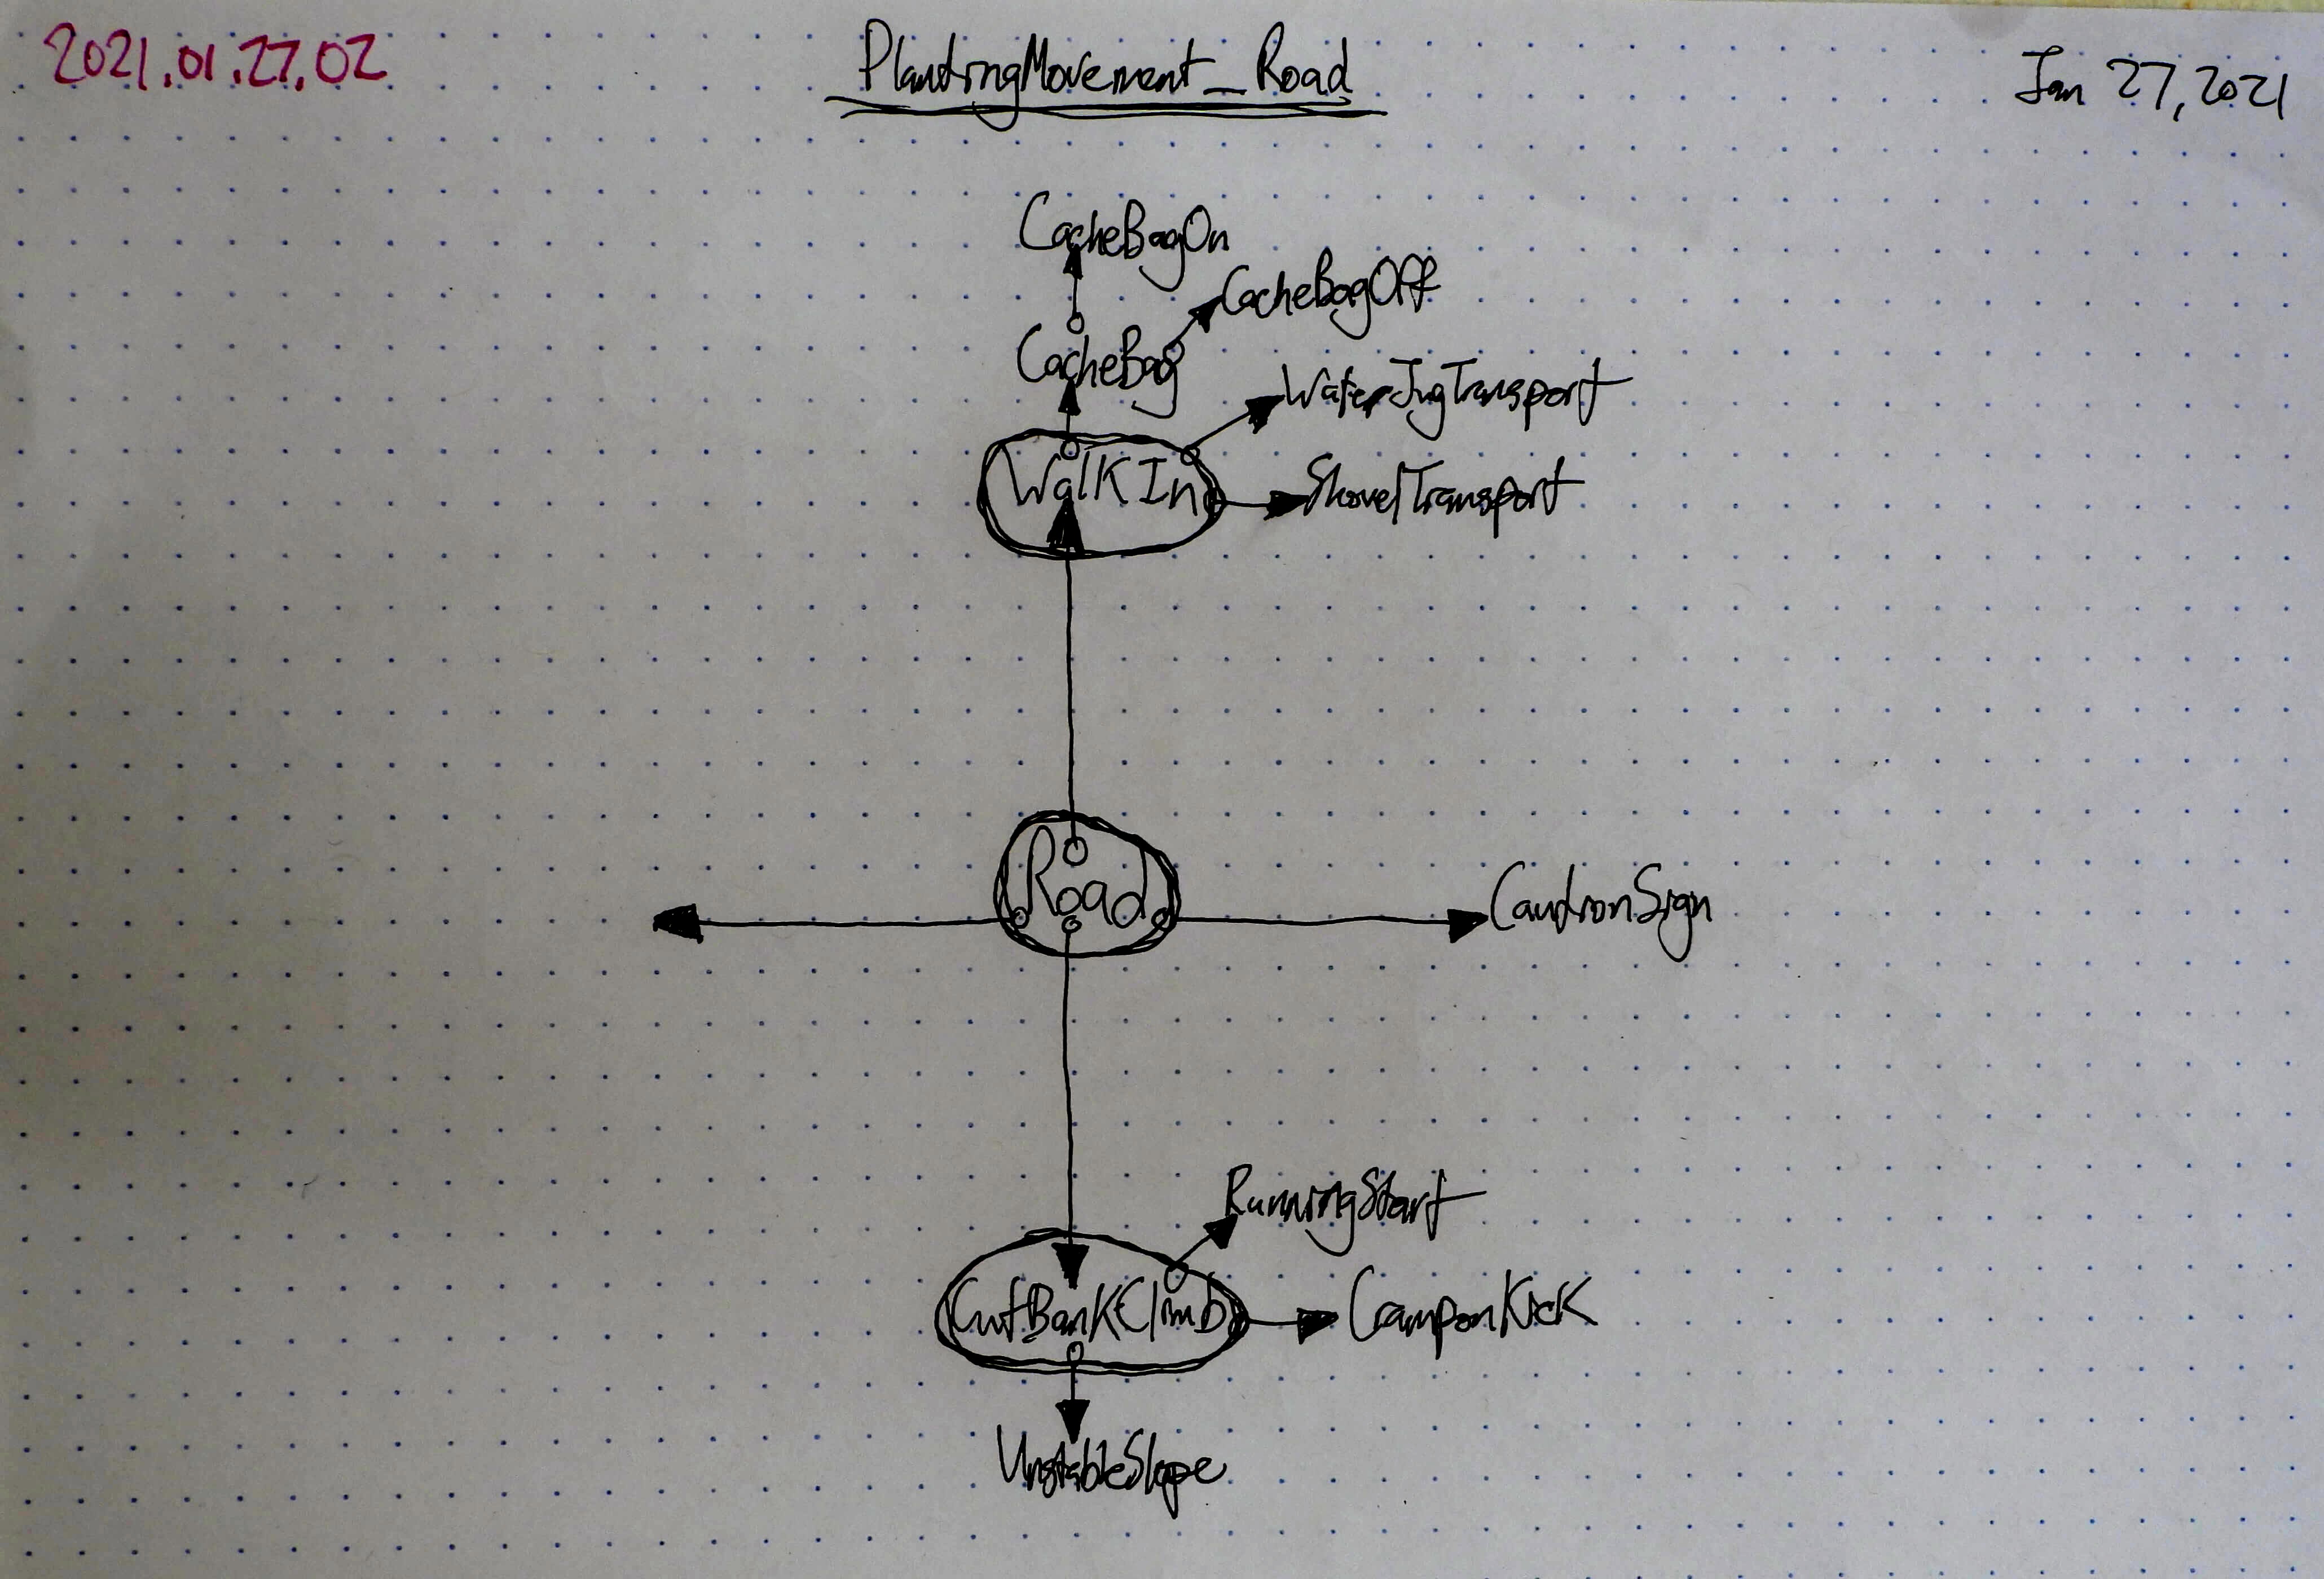 2021.01.27.02
PlantingMovement_Road
Jan 27, 2021
CacheBagOn
CacheBagOff
CacheBag
WaterJugTransport
WalkIn
ShovelTransport
Road
CautionSign
RunningStart
CutBankClimb
CramponKick
UnstableSlope